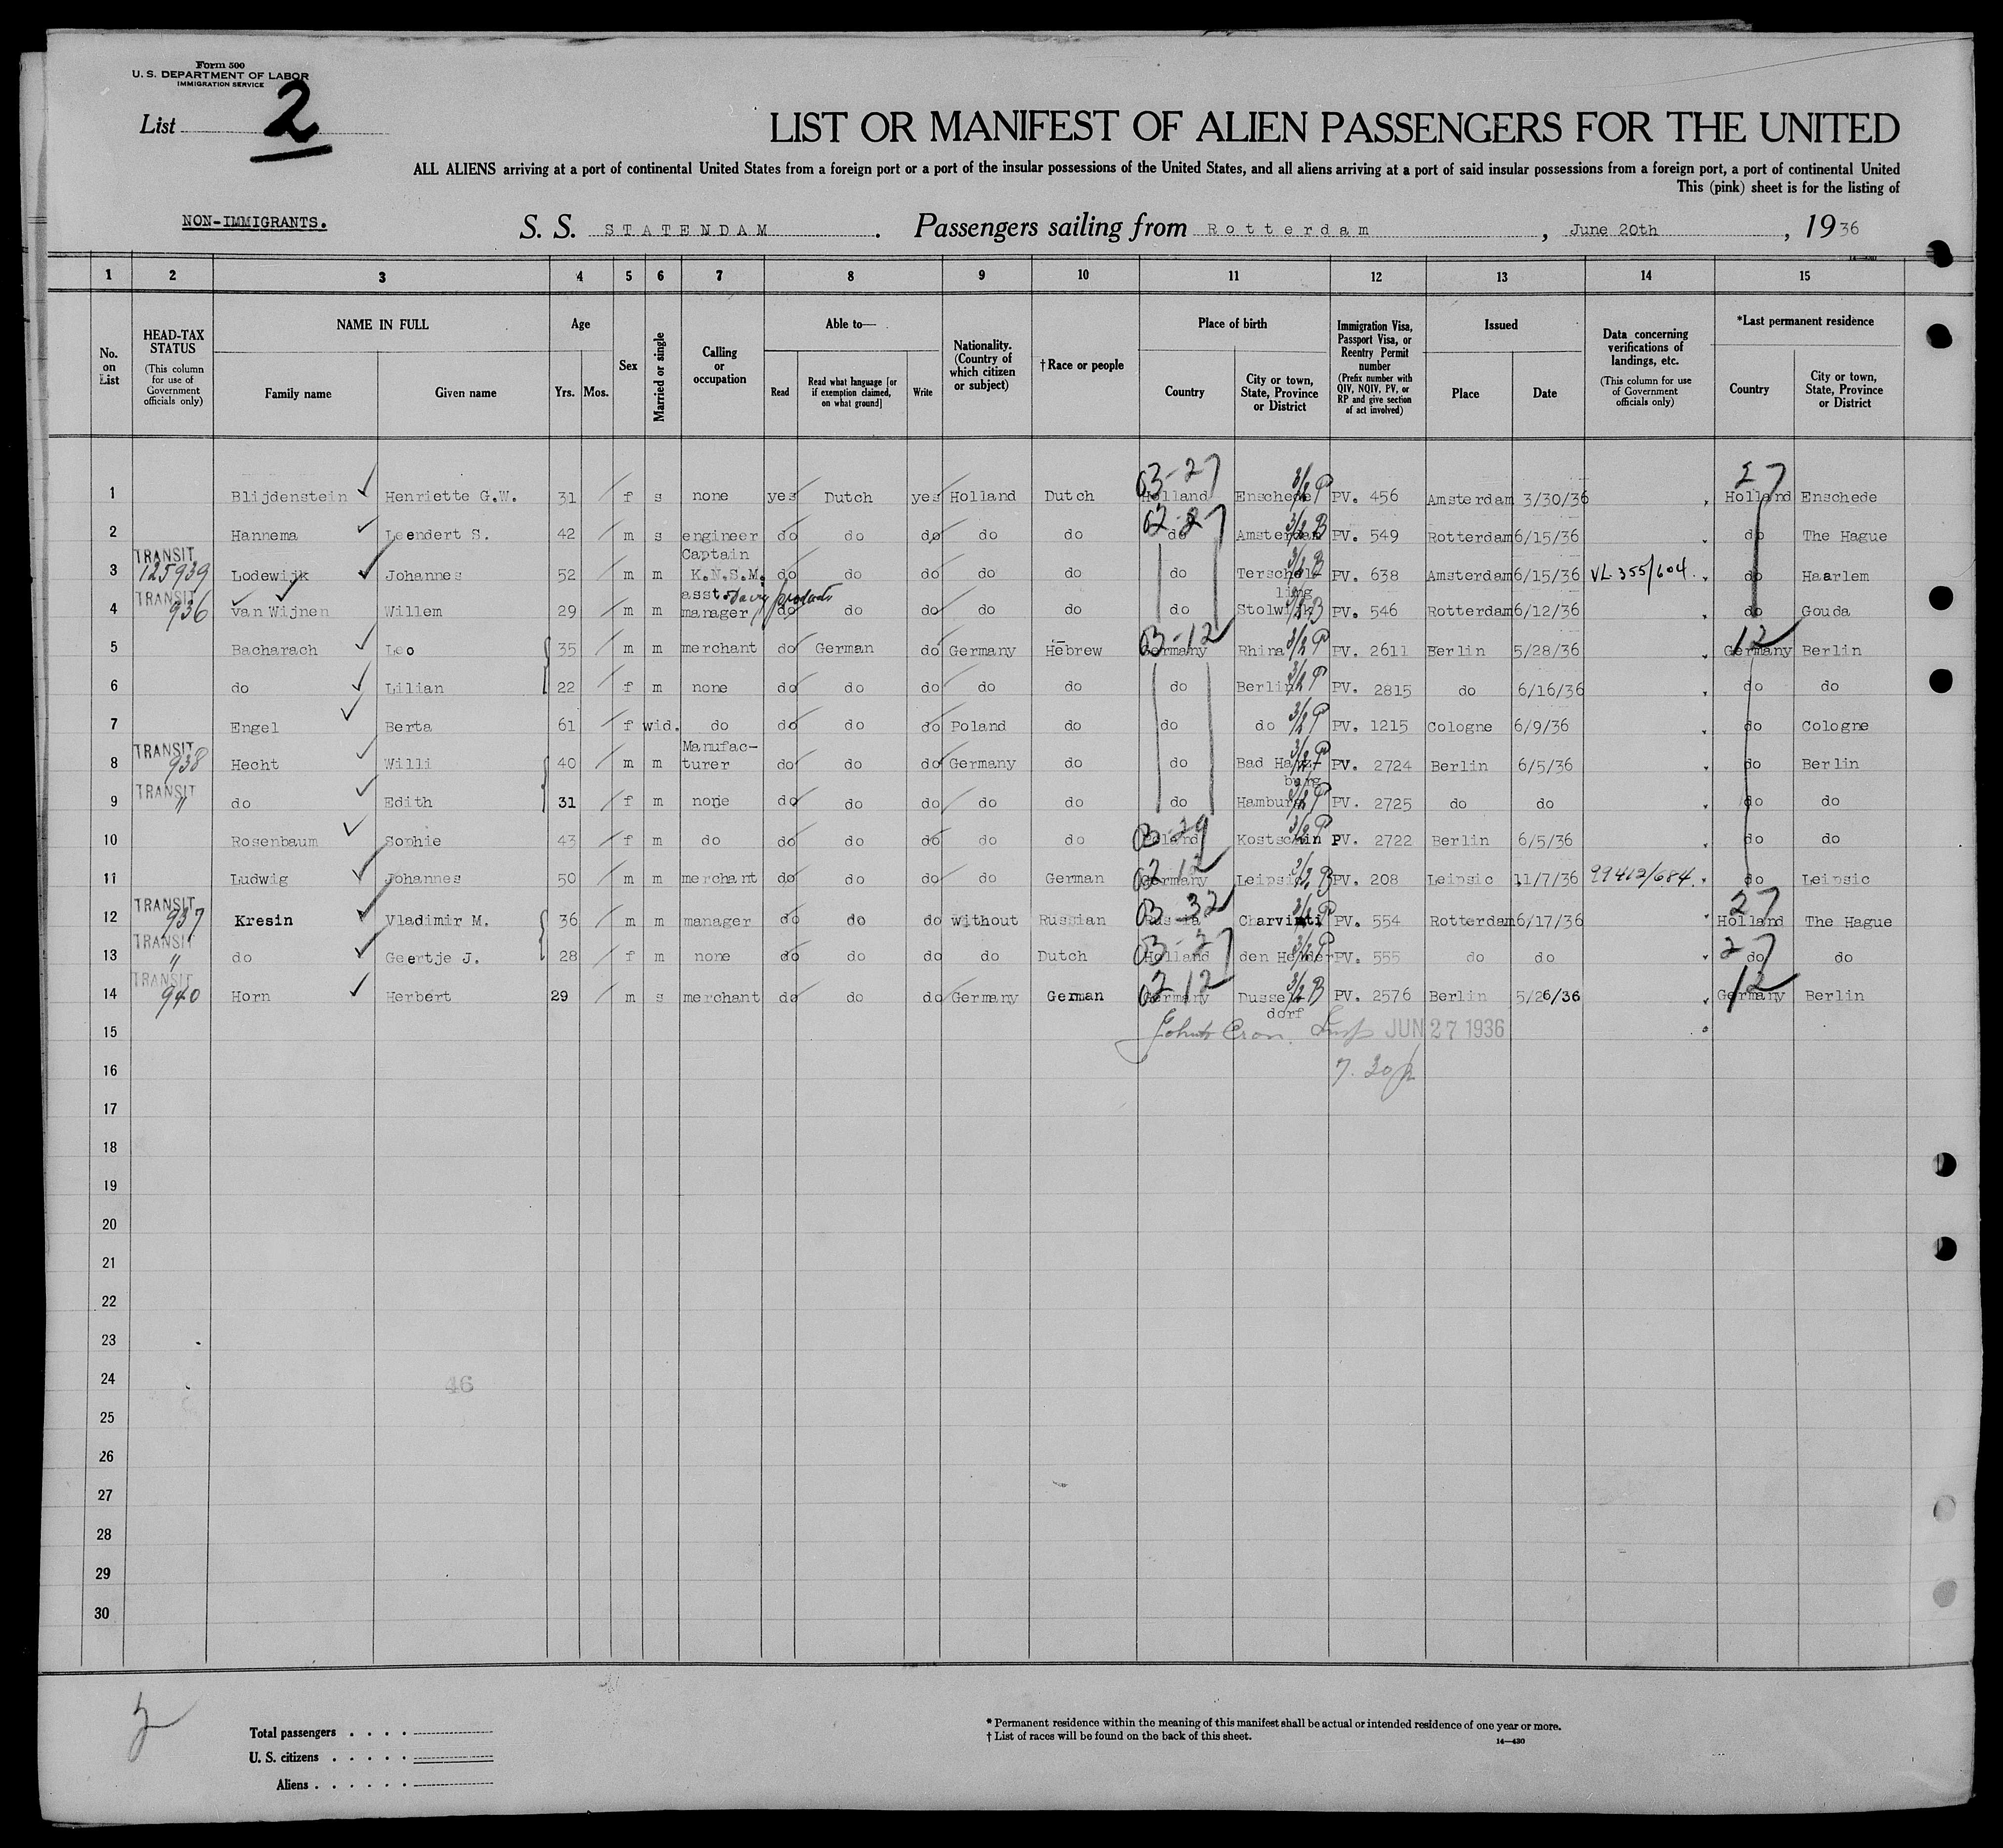 Form 500
U. S. DEPARTMENT OF LABOR
IMMIGRATION SERVICE
List 2
LIST OR MANIFEST OF ALIEN PASSENGERS FOR THE UNITED
ALL ALIENS arriving at a port of continental United States from a foreign port or a port of the insular possessions of the United States, and all aliens arriving at a port of said insular possessions from a foreign port, a port of continental United
This (pink) sheet is for the listing of
NON-IMMIGRANTS. S. S. STATENDAM. Passengers sailing from Rotterdam, June 20th, 1936
1 2 3 4 5 6 7 8 9 10 11 12 13 14 15
No. on List
HEAD-TAX STATUS (This column for use of Government officials only)
NAME IN FULL
Family name Given name
Age
Yrs. Mos.
Sex
Married or single
Calling or occupation
Able to—
Read Read what language [or if exemption claimed, on what ground] Write
Nationality. (Country of which citizen or subject)
† Race or people
Place of birth
Country City or town, State, Province or District
Immigration Visa, Passport Visa, or Reentry Permit number (Prefix number with QIV, NQIV, PV, or RP and give section of act involved)
Issued
Place Date
Data concerning verifications of landings, etc. (This column for use of Government officials only)
*Last permanent residence
Country City or town, State, Province or District
1 Blijdenstein Henriette G.W. 31 f s none yes Dutch yes Holland Dutch 03-27 Holland Enschede 3/2 P PV. 456 Amsterdam 3/30/36 27 Holland Enschede
2 Hannema Leendert S. 42 m s engineer do do do do do 02-27 do Amsterdam 3/2 B PV. 549 Rotterdam 6/15/36 do The Hague
3 TRANSIT 125939 Lodewijk Johannes 52 m m Captain K.N.S.M. do do do do do do Terschelling 3/2 B PV. 638 Amsterdam 6/15/36 VL 355/604. do Haarlem
4 TRANSIT 936 van Wijnen Willem 29 m m asst. manager Dairy products do do do do do do Stolwijk 3/2 B PV. 546 Rotterdam 6/12/36 do Gouda
5 Bacharach Leo 35 m m merchant do German do Germany Hebrew 03-12 Germany Rhina 3/2 P PV. 2611 Berlin 5/28/36 12 Germany Berlin
6 do Lilian 22 f m none do do do do do do Berlin 3/2 P PV. 2815 do 6/16/36 do do
7 Engel Berta 61 f wid. do do do do Poland do do do 3/2 P PV. 1215 Cologne 6/9/36 do Cologne
8 TRANSIT 938 Hecht Willi 40 m m Manufacturer do do do Germany do do Bad Harzburg 3/2 P PV. 2724 Berlin 6/5/36 do Berlin
9 TRANSIT " do Edith 31 f m none do do do do do do Hamburg 3/2 P PV. 2725 do do do do
10 Rosenbaum Sophie 43 f m do do do do do do 03-29 Poland Kostschin 3/2 P PV. 2722 Berlin 6/5/36 do do
11 Ludwig Johannes 50 m m merchant do do do do German 02 12 Germany Leipsic 3/2 B PV. 208 Leipsic 11/7/36 99412/684. do Leipsic
12 TRANSIT 937 Kresin Vladimir M. 36 m m manager do do do without Russian 03 32 Russia Charvinti 3/2 P PV. 554 Rotterdam 6/17/36 27 Holland The Hague
13 TRANSIT " do Geertje J. 28 f m none do do do do Dutch 03-27 Holland den Helder 3/2 P PV. 555 do do 27 do do
14 TRANSIT 940 Horn Herbert 29 m s merchant do do do Germany German 02 12 Germany Dusseldorf 3/2 B PV. 2576 Berlin 5/26/36 12 Germany Berlin
15 Cron. Insp JUN 27 1936
16 7.30p
17
18
19
20
21
22
23
24 46
25
26
27
28
29
30
2
Total passengers . . . .
U. S. citizens . . . . .
Aliens . . . . . .
* Permanent residence within the meaning of this manifest shall be actual or intended residence of one year or more.
† List of races will be found on the back of this sheet.
14—430